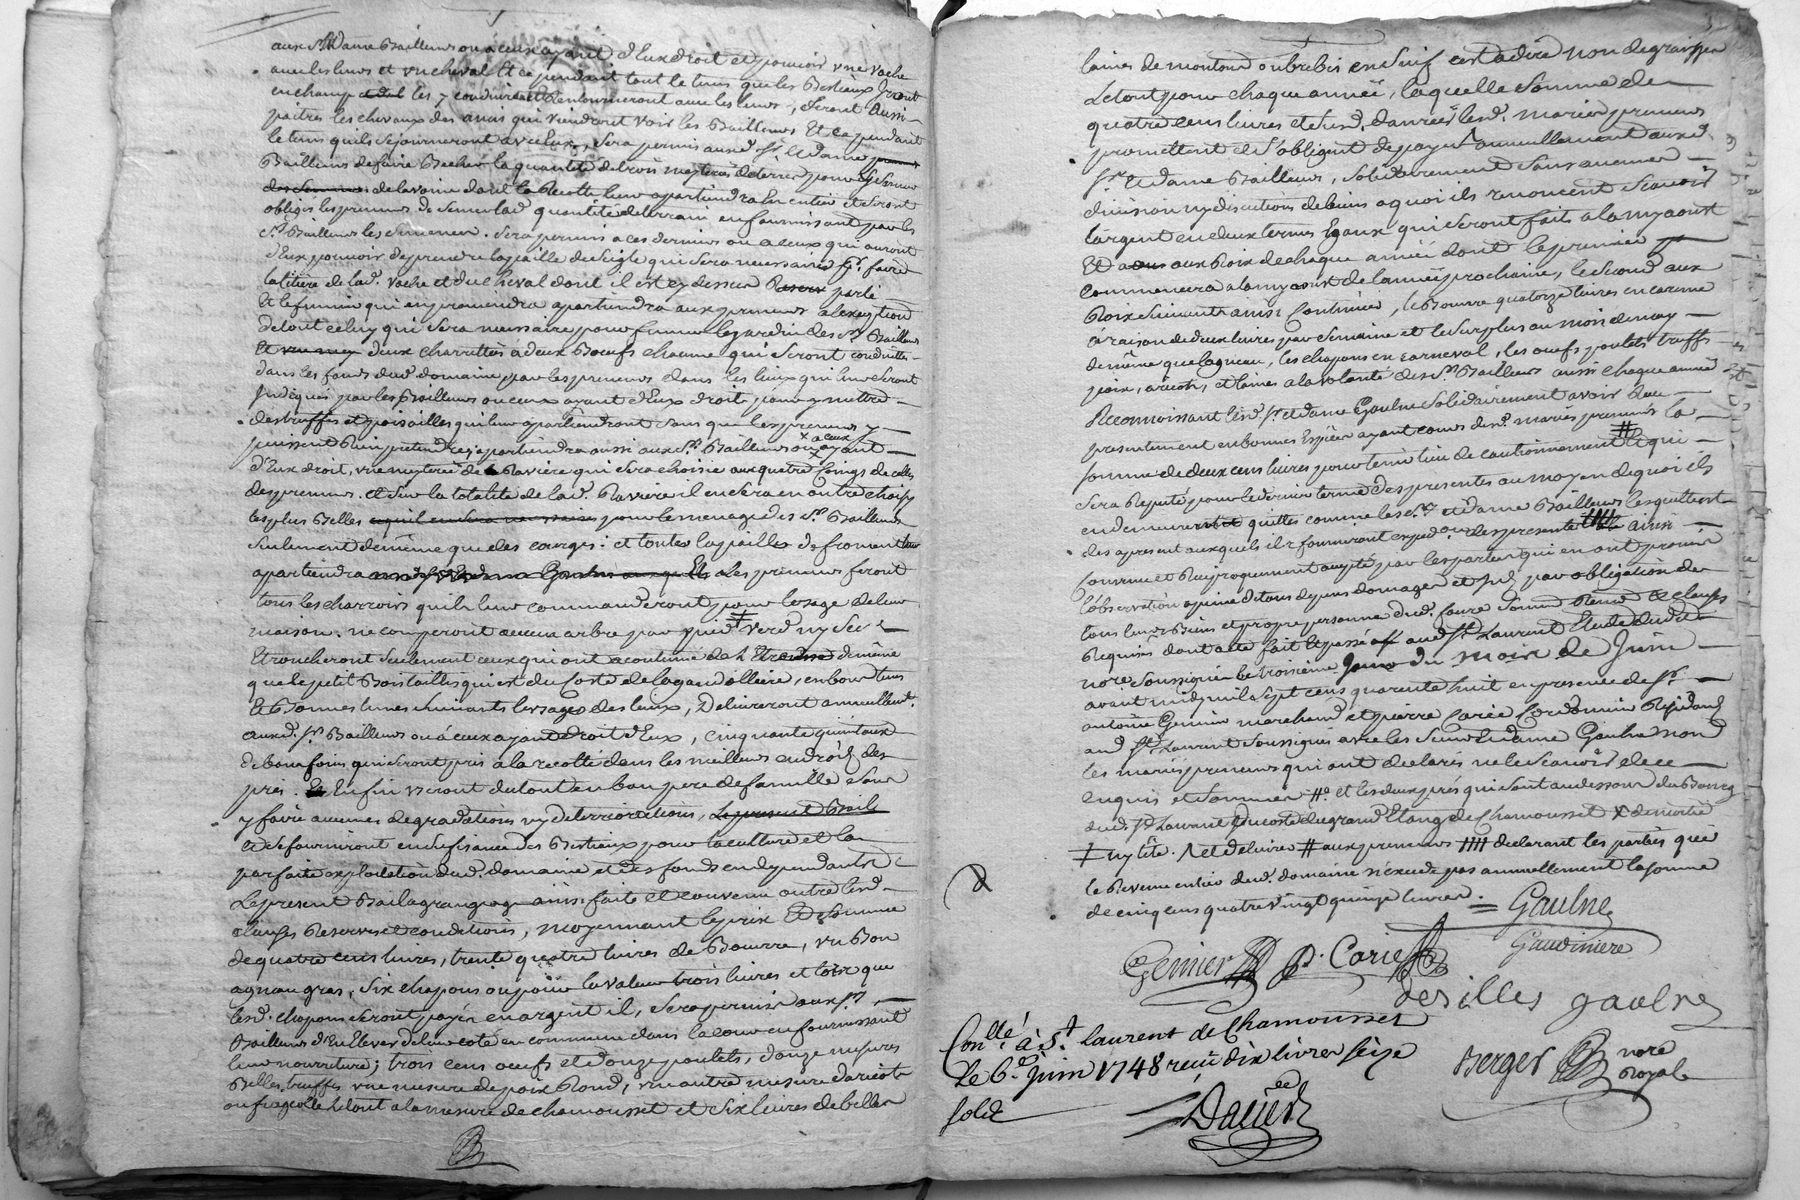 aux Sr. et dame Bailleurs ou a ceux ayant d'Eux droit et pouvoir une vache
avec les leurs et un cheval Et ce pendant tout le tems que les Bestiaux Iront
en champ les y conduiront et Rentourneront avec les leurs, feront Aussi
paitre les chevaux des amis qui viendront voir les Bailleurs Et ce pendant
le tems quils sejourneront avec Eux, sera permis aud. Sr. et dame
Bailleurs de faire becher la quantité de trois mayterées de terre pour y semer
de lavoine dont la Recolte leur apartiendra En entier et seront
obligés les preneurs de semer lad. quantité de terrain en fournissant par les
Srs. Bailleurs les semences. sera permis a ces derniers ou a ceux qui auront
d'Eux pouvoir de prendre la paille de seigle qui sera necessaire pr. faire
la litiere de lad. vache et du cheval dont il est cy dessus parlé
Et le fumier qui en proviendra apartiendra aux preneurs a lexeption
de tout celuy qui sera necessaire pour fumer les jardin des Srs. Bailleurs
deux charrettées a deux Bœufs chacune qui seront conduittes
dans les fonds dud. domaine par les preneurs dans les lieux qui leur seront
Indiqués par les Bailleurs ou ceux ayant d'Eux droit pour y mettre
des truffes et poisailles qui leur apartiendront sans que les preneurs y
puissent Rien pretendre, apartiendra aussi aux Srs. Bailleurs ou a ceux ayant
d'Eux droit, une mayterée de Raviere qui sera choisie aux quatre coings de celles
des preneurs. et sur la totalité de lad. Raviere il en sera en outre choisy
les plus Belles pour le menage des Srs. Bailleurs
seulement de même que des courges: et toutes la paille de froment leur
apartiendra Les preneurs feront
tous les charrois quils leur commanderont pour lusage de leur
maison. ne couperont aucun arbre par pied verd ny sec
Et toucheront seulement ceux qui ont acoutumé de l'Etre de même
que le petit Bois taillis qui est du costé de la gandolliere, en bon tems
Et Bonnes lunes suivants lusage des lieux, Delivreront annuellemt.
auxd. Srs. Bailleurs ou a ceux ayant droit d'Eux, cinquante quintaux
de bon foin qui seront pris a la recolte dans les meilleurs endroits des
prés. Enfin useront du tout en bon pere de famille sans
y faire aucunes degradations ny deteriorations, Le present Bail
et se fourniront en suffisance des Bestiaux pour la culture et la
parfaite exploitation dud. domaine et des fonds en dependants
Le present Bail a grangeage ainsi faite et convenu outre lesd.
clauses Reserves et conditions, moyennant le prix Et somme
de quatre cens livres, trente quatre livres de Beurre, un Bon
agneau gras, six chapons ou pour la valeur trois livres et lors que
lesd. chapons seront payés en argent il, sera permis aux Srs.
Bailleurs d'En Elever de leur coté en commun dans la cour en fournissant
leur nourriture; trois cens œufs et douze poulets, douze mesures
Belles truffes une mesure de pois Rond, un autre mesure d'aricots
ou fregeolle le tout a la mesure de chamousset et six livres de belles
laines de moutons ou brebis en suif cest a dire non degraissées
Le tout pour chaque année, laquelle somme de
quatre cens livres et susd. danrées lesd. mariés preneurs
promettent et s'obligent de payer annuellement auxd.
Sr. Et dame Bailleurs, solidairement sans aucune
division ny discution de biens a quoi ils renoncent scavoir
l'argent en deux termes Egaux qui seront faits a la my aoust
Et aux Rois de chaque année dont le premier
commencera a la my aoust de l'année prochaine, le second aux
Rois suivants ainsi continuer, le Beurre quatorze livres en careme
a raison de deux livres par semaine et le surplus au mois de may
de même que lagneau, les chapons en carneval, les œufs poulets truffes
pois, aricots, et laines a la volonté des Srs. Bailleurs aussi chaque année
Reconnoissant lesd. Sr. et dame Gaulne solidairement avoir Reçu
presentement en bonnes Espèces ayant cours desd. mariés preneurs la
somme de deux cens livres pour tenir lieu de cautionnement # qui
sera Reputé pour le dernier terme des presentes au moyen de quoi ils
en demeurent quittes comme les Sr. et dame Bailleurs les quittent
des apresent auxquels ils fourniront exped.on des presentes #### ainsi
convenu et Reciproquement accepté par les parties qui en ont promis
l'observation a peine de tous depens domages et Int. par obligation de
tous leurs Biens et propre personne dud. faure soumis. Renon. Et clauses
Requises dont acte fait et passé aud. St. Laurent Etude dud.
nore. soussigné Le troisième Jour du mois de Juin
avant midy mil sept cens quarente huit en presence de Sr.
antoine Genier marchand et pierre Carié Cordonnier Residans
aud. St. Laurent soussignés avec les Sieur Et dame Gaulne non
les mariés preneurs qui ont declaré ne le scavoir de ce
enquis et sommés #. et les deux prés qui sont au dessous du Bourg
dud. St. Laurent du costé du grand Etang de Chamousset X de moitié
ǂ ny tête. Λ et delivrer # aux preneurs #### declarant les parties que
le Revenu entier dud. domaine n'éxcede pas annuellement la somme
de cinq cens quatre vingt quinze livres. = Gaulne
Gaudiniere
Genier P. Carié
desilles gaulne
Berger nore
Royal
Conllé. à St. laurent de Chamousset
Le 6e. Juin 1748 reçu dix livres seize
sols
Daviers